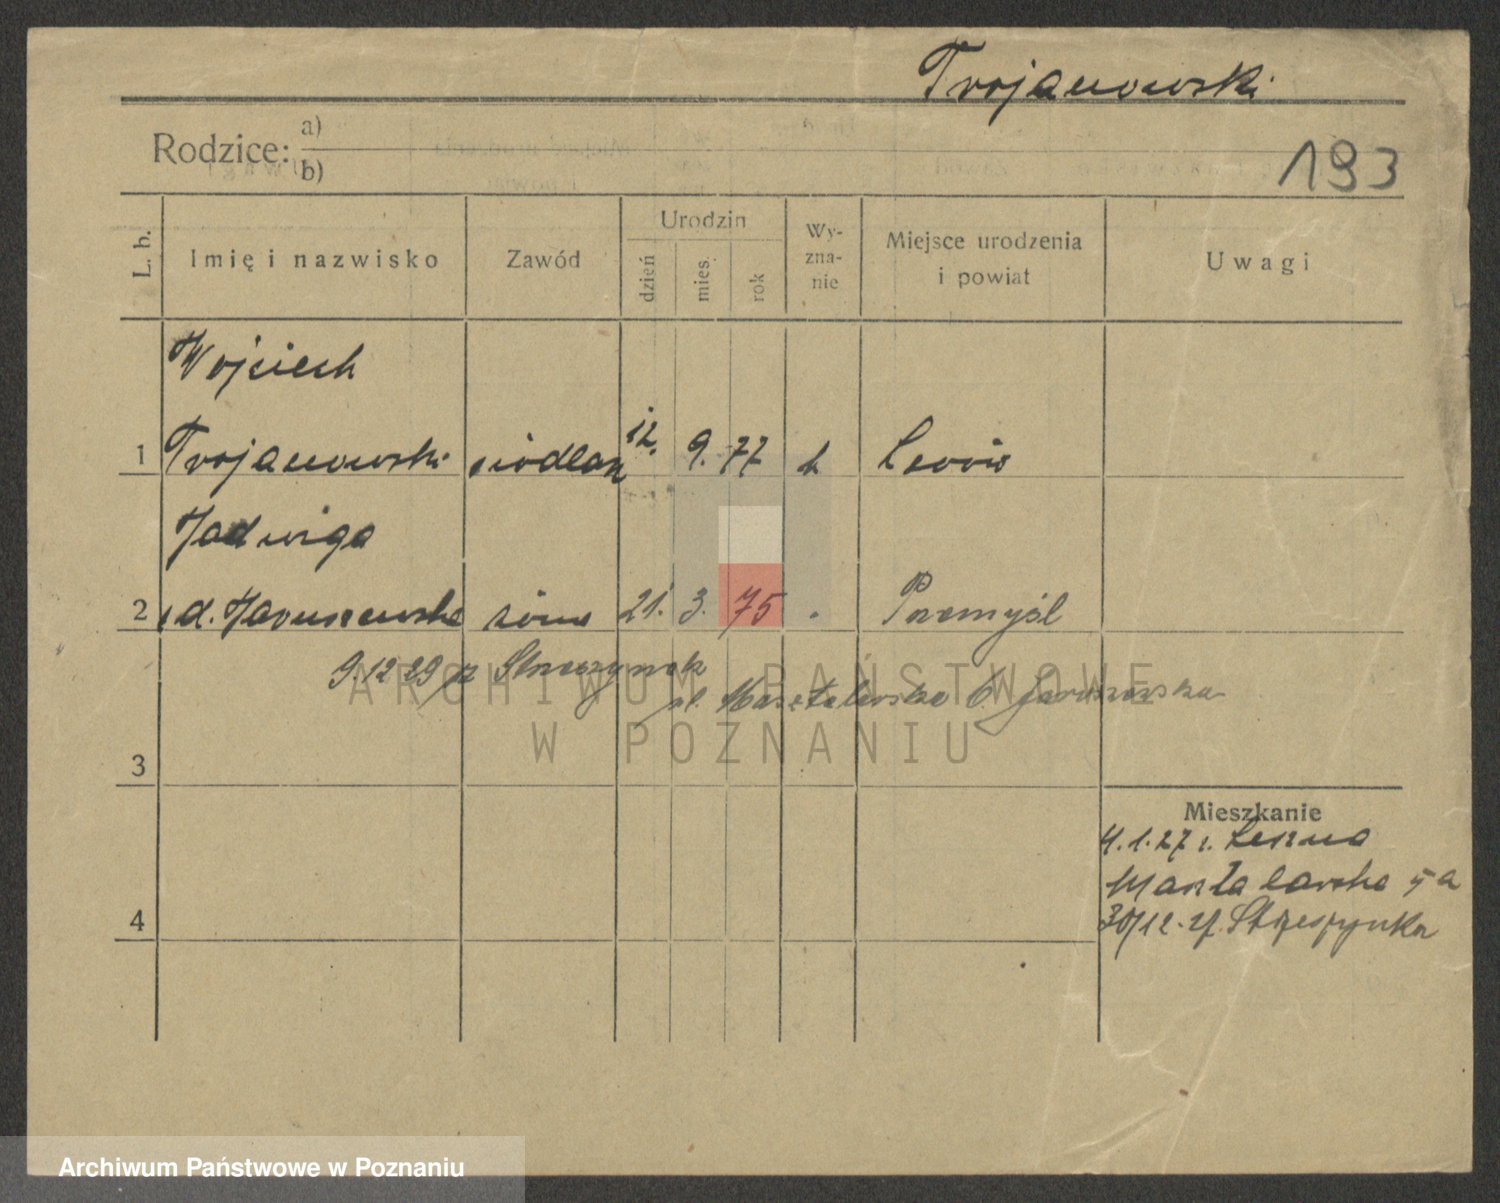 Trojanowski
Rodzice: a)
b)
193
L. b.
Imię i nazwisko
Zawód
Urodzin
dzień
mies.
rok
Wy-
zna-
nie
Miejsce urodzenia
i powiat
Uwagi
Wojciech
1 Trojanowski siodlarz 12. 9. 77 k Lwów
Jadwiga
2 żona 21. 3. 75 " Przemyśl
9.12 29 z Strzeszynek
ul. Masztalarska 6 Jaroszewska
3
Mieszkanie
4.1.27 r. Leszna
Masztalarska 5a
30/12. 27. Strzeszynka
4
ARCHIWUM PAŃSTWOWE
W POZNANIU
Archiwum Państwowe w Poznaniu